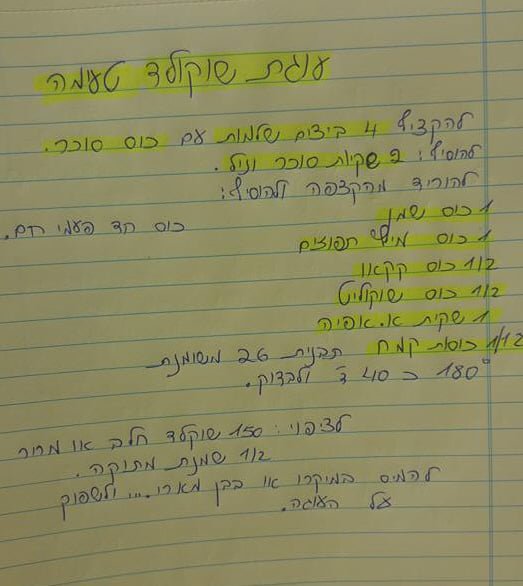 עוגת שוקולד טעימה
להקציף 4 ביצים שלמות עם כוס סוכר.
להוסיף: 2 שקיות סוכר וניל.
להוריד מהקצפה ולהוסיף:
1 כוס שמן
כוס חד פעמי חם.
1 כוס מיץ תפוזים
1/2 כוס קקאו
1/2 כוס שוקוליט
1 שקית א. אפיה
1 1/2 כוסות קמח תבנית 26 משומנת
180° כ 40 ד' ולבדוק.
לציפוי: 150 שוקלד חלב או מריר
1/2 שמנת מתוקה.
להמיס במיקרו או בבן מארי... ולשפוך
על העוגה.